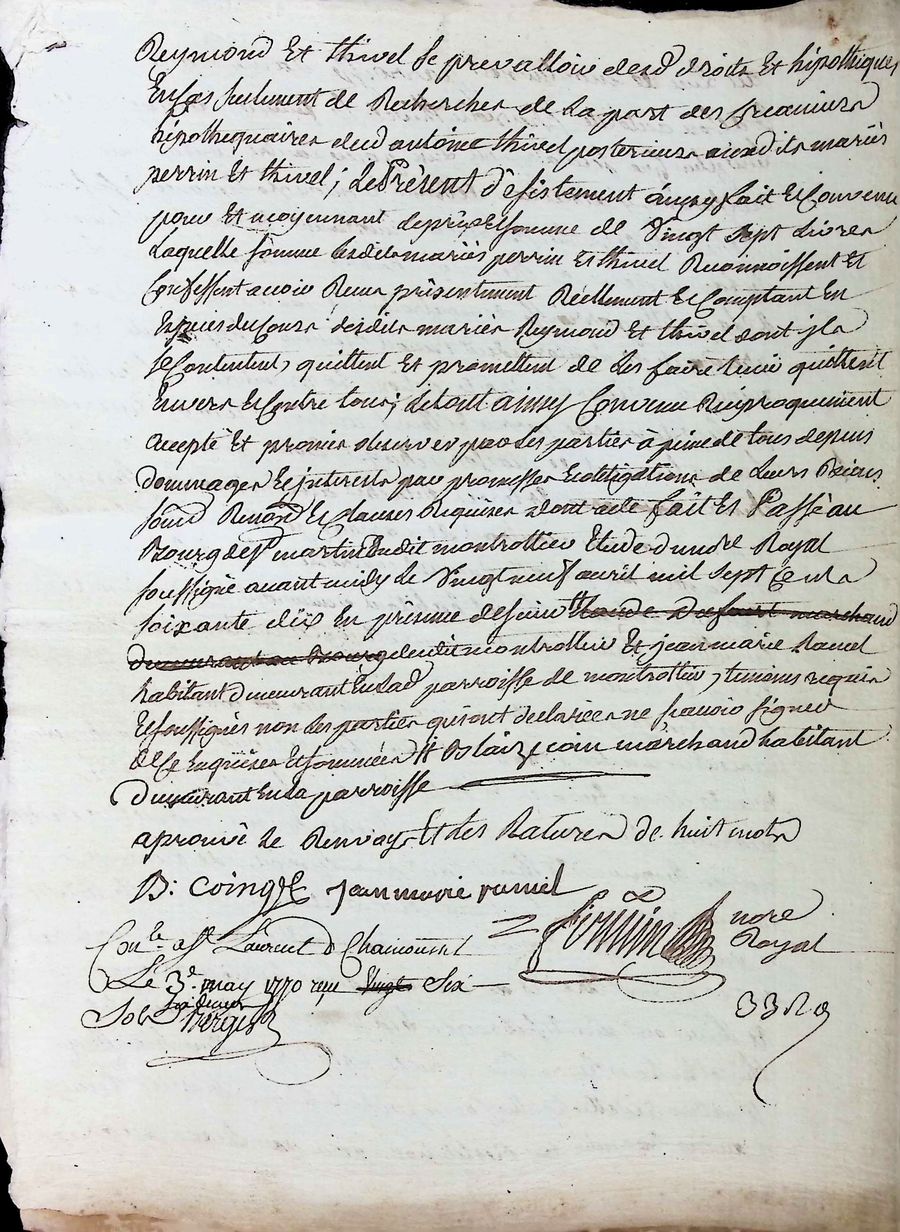 Reymond Et thivel se prevalloir desd droits Et hipothiques
En Cas seulement de Recherches de La part des Creanciers
hipothequaires dud antoine thivel posterieurs auxdits mariés
perrin Et thivel; Le Présent Désistement ainsy fait Et Convenu
pour Et moyennant le prix Et somme de Vingt sept Livres
Laquelle somme lesdits mariés perrin Et thivel Reconnoissent Et
Confessent avoir Reçu présentement Réellement Et Comptant En
Espèces du Cours desdits mariés Reymond Et thivel dont ils
se Contentent, quittent Et promettent de Les faire tenir quittes
Envers Et Contre tous; Le tout ainsy Convenu Réciproquement
accepté Et promis observer par Les parties à peine de tous depens
dommages Et interests par promesses Et obligations de Leurs Biens
soumd Renond Et clauses Requises dont acte fait Et Passé au
Bourg de St martin Dudit montrottier Etude du nore Royal
soussigné avant midy Le Vingt neuf avril mil sept Cents
soixante dix En présence de sieur Claude Dufourt marchand
demeurant au Bourg dudit montrottier Et jean marie Ramel
habitant demeurant En Lad parroisse de montrottier, témoins requis
Et soussignés non Les parties qui ont declarées ne sçavoir signer
de Ce Enquises Et sommées # Blaize coin marchand habitant
Demeurant En La parroisse
aprouvé Le Renvoy Et Les Ratures de huit mots
B: Coinge jean marie ramel
nore
Royal
Conlé a St Laurent d Chamousset
Le 3e may 1770 reçu vingt Six
Sols six deniers